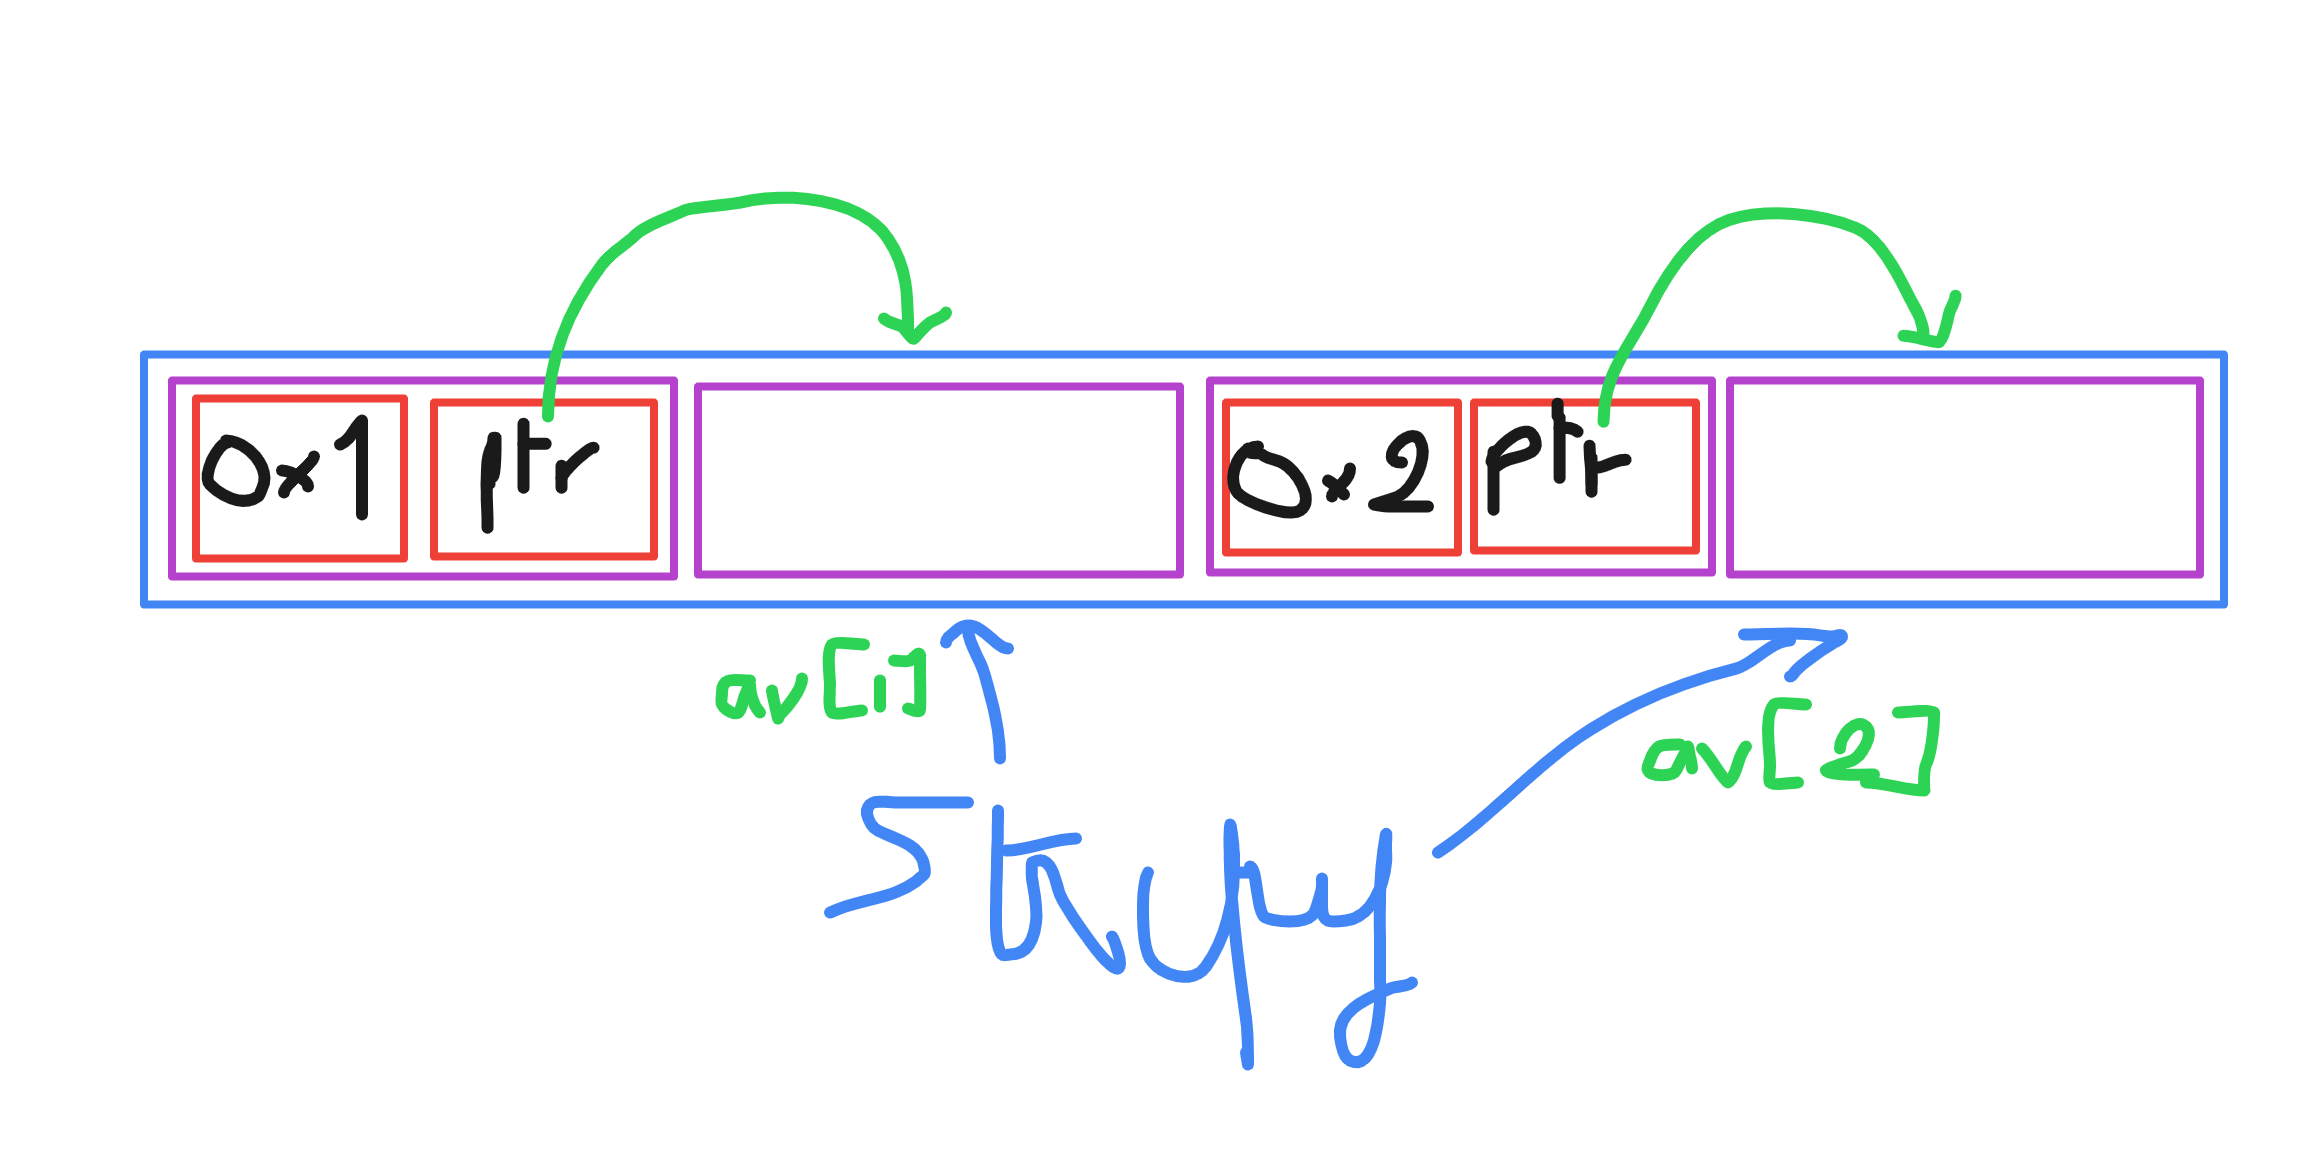 0x1 ptr 0x2 ptr
av[1]
av[2]
strcpy